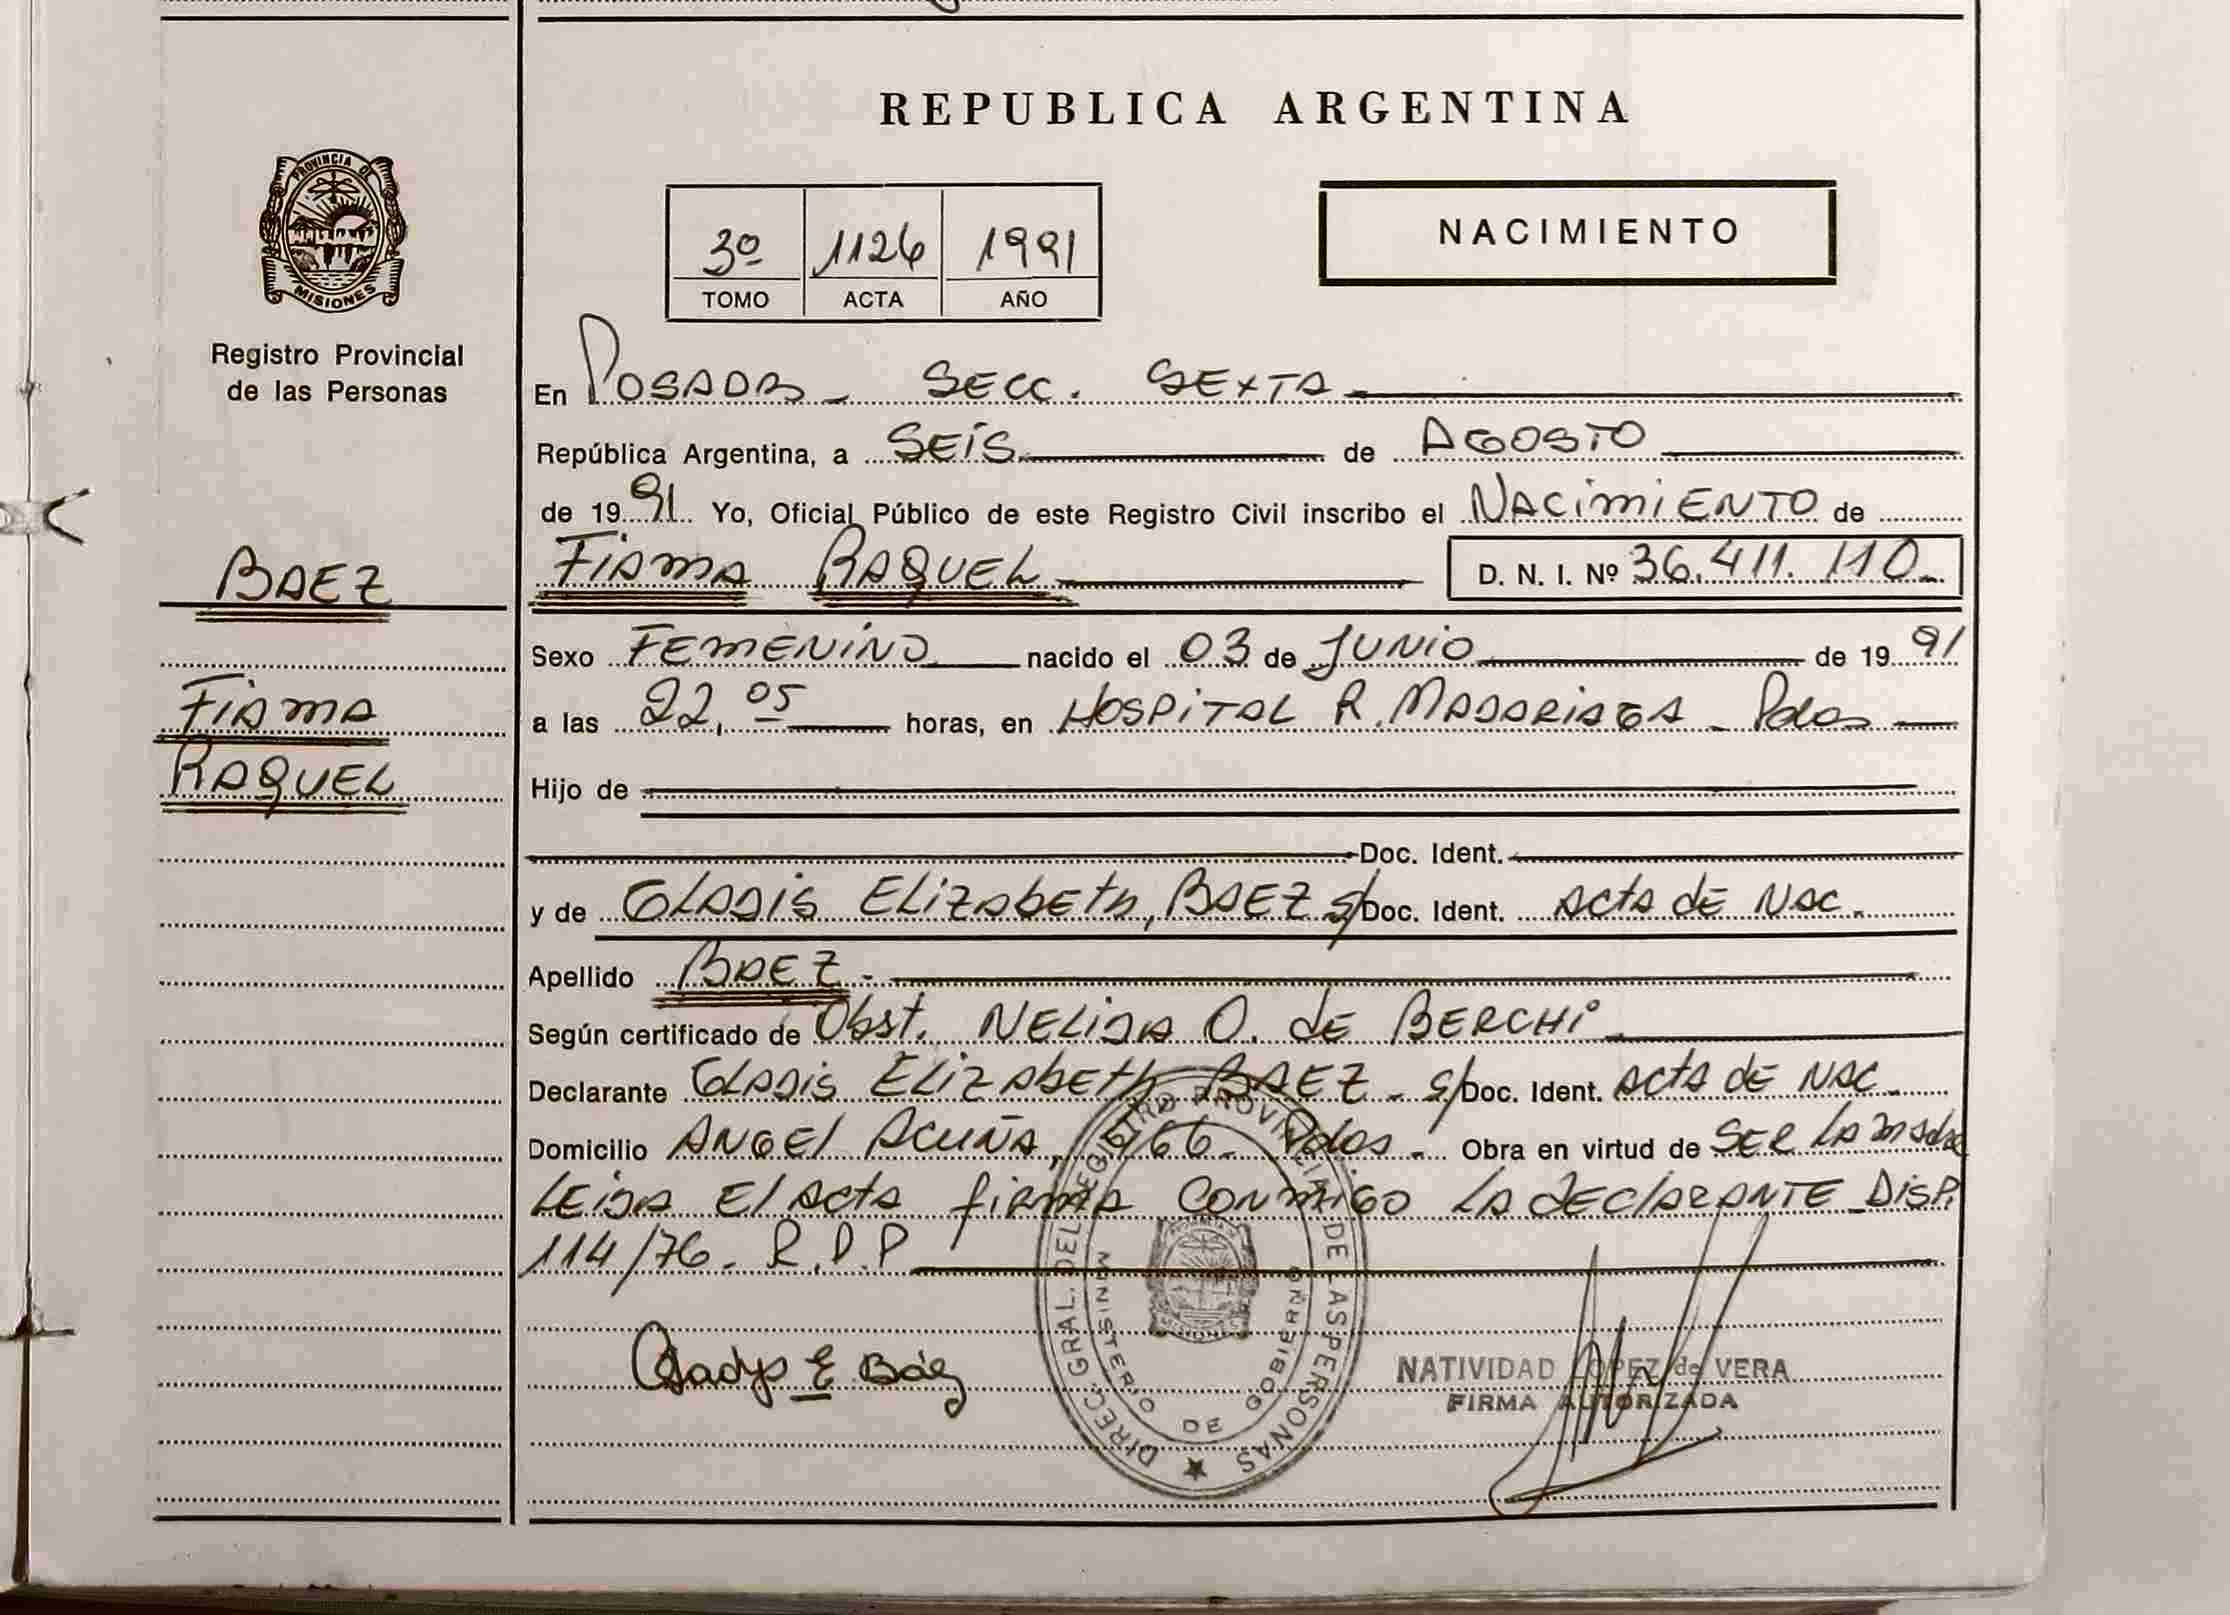 REPUBLICA ARGENTINA
PROVINCIA DE
MISIONES
Registro Provincial
de las Personas
3º 1126 1991
TOMO ACTA AÑO
NACIMIENTO
En POSADAS - SECC. SEXTA
República Argentina, a SEIS de AGOSTO
de 1991 Yo, Oficial Público de este Registro Civil inscribo el NACIMIENTO de
BAEZ
FIAMA RAQUEL D. N. I. Nº 36.411.110
Sexo FEMENINO nacido el 03 de JUNIO de 1991
FIAMA
a las 22,05 horas, en HOSPITAL R. MADARIAGA - Pdas
RAQUEL
Hijo de
Doc. Ident.
y de GLADIS ELIZABETH, BAEZ s/Doc. Ident. ACTA DE NAC.
Apellido BAEZ.-
Según certificado de Obst. NELIDA O. de BERCHI
Declarante GLADIS ELIZABETH BAEZ - s/Doc. Ident. ACTA DE NAC.
Domicilio ANGEL ACUÑA, Pdas. - Obra en virtud de SER LA MADRE
LEIDA El ACTA firma CONMIGO LA DECLARANTE - DISP.
114/76. R.P.P
Gladys E Báez
DIRECC. GRAL. DEL REGISTRO PROVINCIAL DE LAS PERSONAS
MINISTERIO DE GOBIERNO
MISIONES
NATIVIDAD LOPEZ de VERA
FIRMA AUTORIZADA